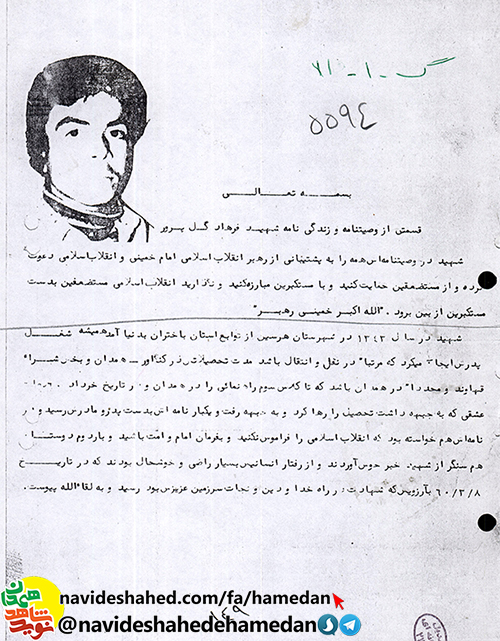 گ - ۱ - ۷۱
۵۵۹۴
بسمه تعالی
قسمتی از وصیتنامه و زندگی نامه شهید فرهاد گل پرور
شهید در وصیتنامه‌اش همه را به پشتیبانی از رهبر انقلاب اسلامی امام خمینی و انقلاب اسلامی دعوت
کرده و از مستضعفین حمایت کنید و با مستکبرین مبارزه کنید و نگذارید انقلاب اسلامی مستضعفین بدست
مستکبرین از بین برود . "الله اکبر خمینی رهبر"
شهید در سال ۱۳۴۳ در شهرستان هرسین از توابع استان باختران بدنیا آمد همیشه شغل
پدرش ایجاب میکرد که مرتبا" در نقل و انتقال باشد مدت تحصیلاتش در کنگاور - همدان و بخش شراء
قهاوند و مجددا" در همدان باشد که تا کلاس سوم راهنمائی را در همدان و در تاریخ خرداد
عشقی که به جبهه داشت تحصیل را رها کرد و به جبهه رفت و یکبار نامه اش بدست پدر و مادرش رسید و در
نامه‌اش هم خواسته بود که انقلاب اسلامی را فراموش نکنید و بفرمان امام و امت باشید و بار دوم دوستان
هم سنگر از شهید خبر خوش آوردند و از رفتار انسانیش بسیار راضی و خوشحال بودند که در تاریخ
۶۰/۳/۸ بآرزویش که شهادت در راه خدا و دین و نجات سرزمین عزیزش بود رسید و به لقاء الله پیوست.
navideshahed.com/fa/hamedan
@navideshahedehamedan
نوید شاهد همدان